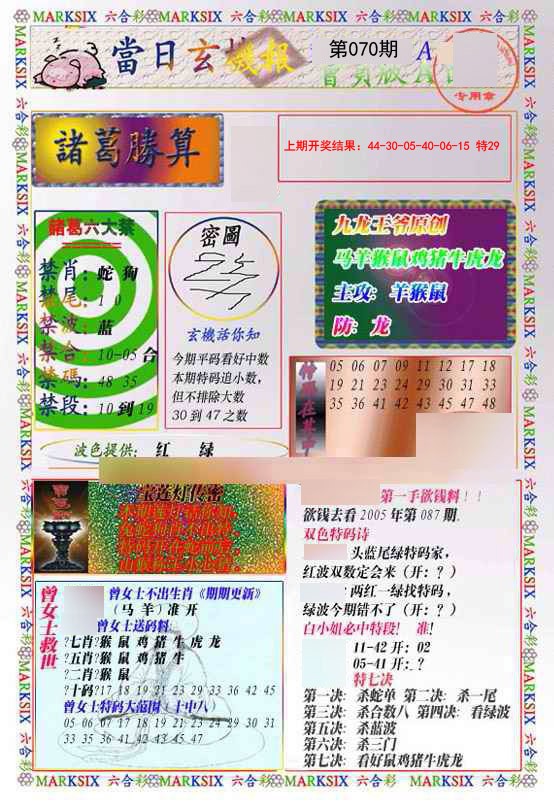 MARKSIX 六合彩 MARKSIX 六合彩 MARKSIX 六合彩 MARKSIX 六合彩
當日玄機報
第070期 A
专用章
諸葛勝算
上期开奖结果：44-30-05-40-06-15 特29
諸葛六大禁
禁肖：蛇 狗
禁尾：1 0
禁波：蓝
禁合：10-05 合
禁碼：48 35
禁段：10 到 19
密圖
玄機活你知
今期平码看好中数
本期特码追小数，
但不排除大数
30 到 47 之数
九龙王爷原创
马羊猴鼠鸡猪牛虎龙
主攻：羊猴鼠
防：龙
05 06 07 09 11 12 17 18
19 21 23 24 29 30 31 33
35 36 41 42 43 45 47 48
波色提供： 红 绿
宝莲灯传密
曾女士救世
曾女士不出生肖《期期更新》
（马 羊）准 开
曾女士送码料
?七肖?猴 鼠 鸡 猪 牛 虎 龙
?五肖?猴 鼠 鸡 猪 牛
?二肖?猴 鼠
?十码?17 18 19 21 23 29 33 36 42 45
曾女士特码大范围（十中八）
05 06 07 17 18 19 21 23 24 29 30 31
33 35 36 41 42 43 45 47
第一手欲钱料！！
欲钱去看 2005 年第 087 期.
双色特码诗
头蓝尾绿特码家，
红波双数定会来（开：？）
两红一绿找特码，
绿波今期错不了（开：？）
白小姐必中特段！ 准！
11-42 开：02
05-41 开：？
特七决
第一决：杀蛇单 第二决：杀一尾
第三决：杀合数八 第四决：看绿波
第五决：杀蓝波
第六决：杀三门
第七决：看好鼠鸡猪牛虎龙
MARKSIX 六合彩 MARKSIX 六合彩 MARKSIX 六合彩 MARKSIX 六合彩